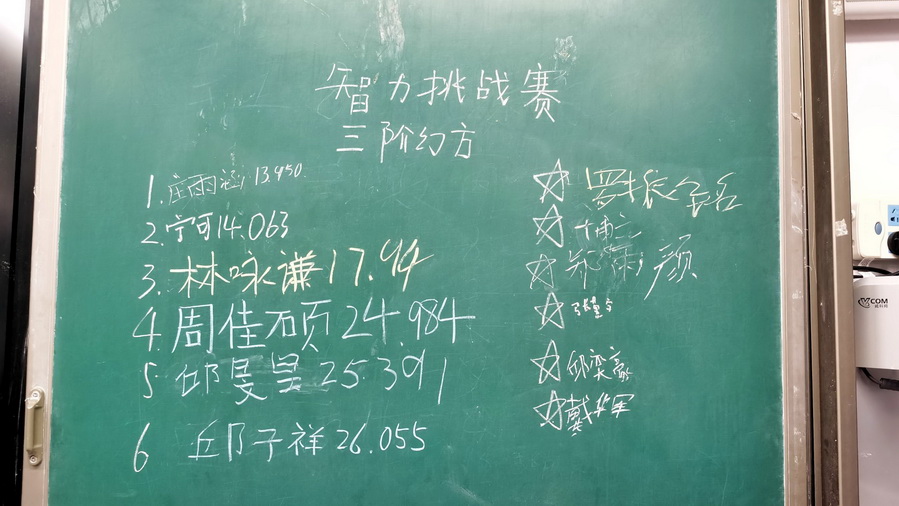 智力挑战赛
三阶幻方
1.庄雨涵 13.950
2.宁可14.063
3.林咏谦17.94
4.周佳硕24.984
5.邱旻昊25.391
6 邱子祥26.055
☆罗振
☆
☆ 颜
☆
☆邱奕豪
☆戴华军
COM